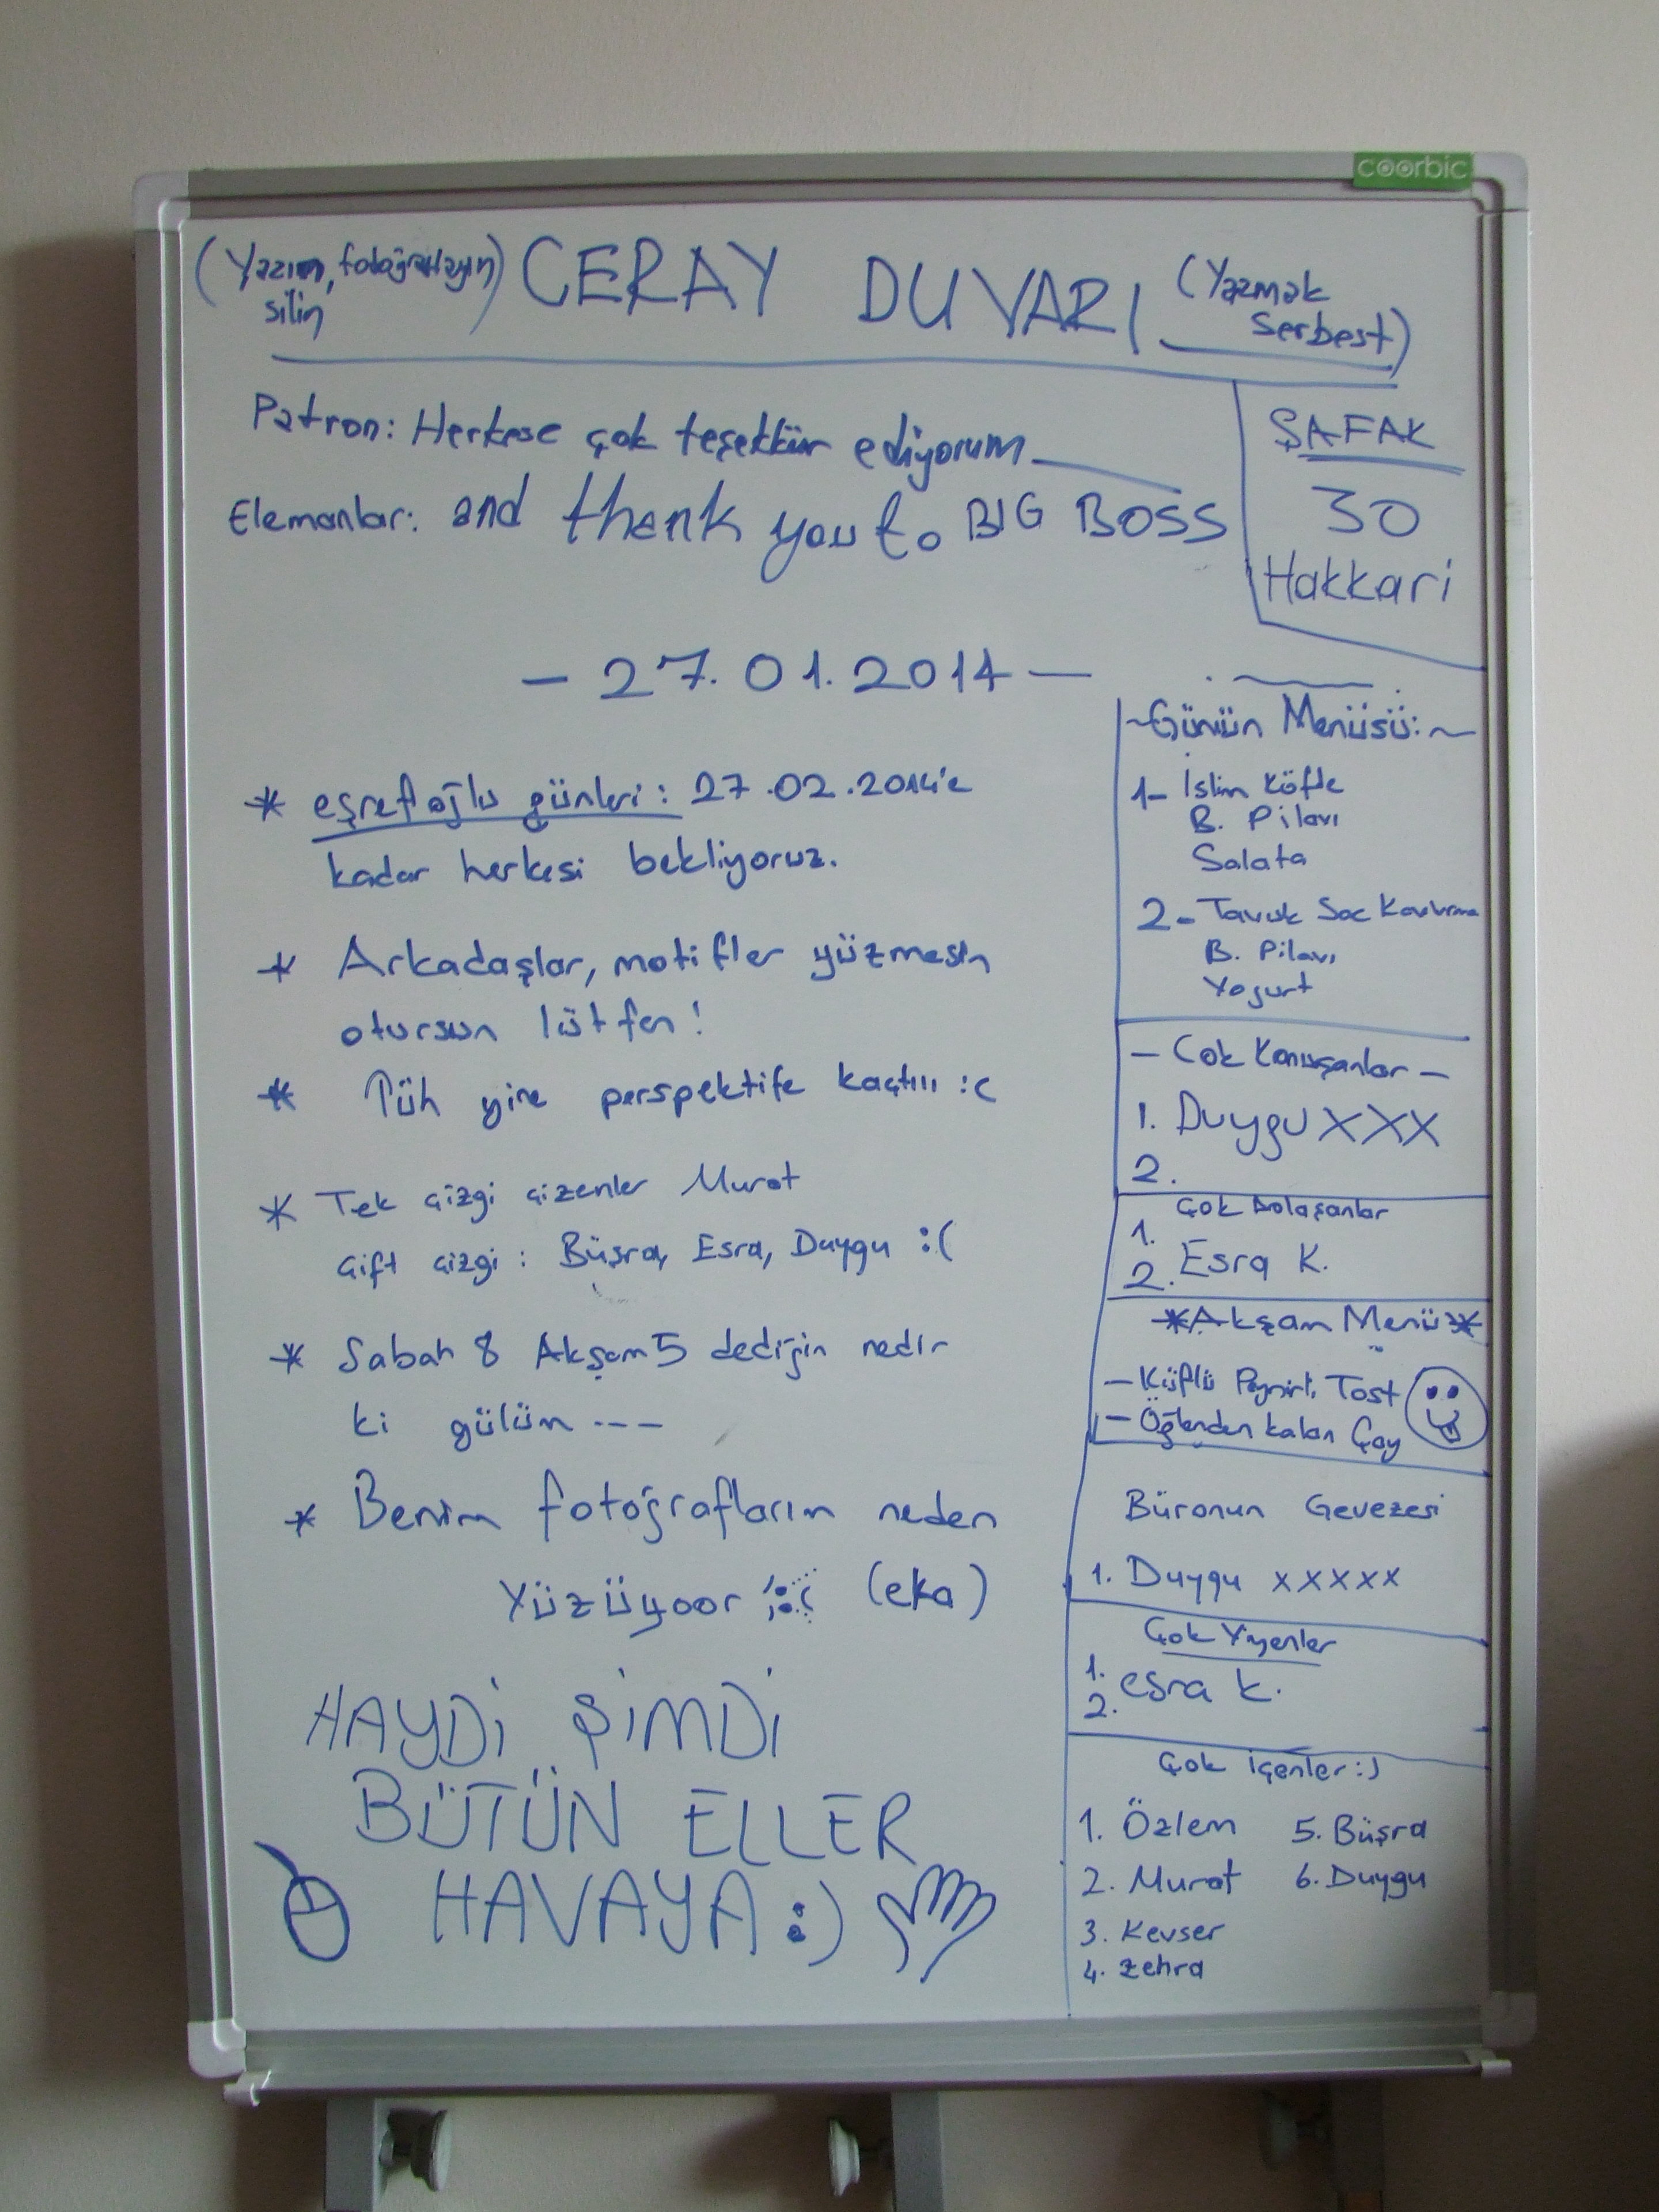 coorbic
(Yazın, fotoğraflayın) CERAY DUVARI (Yazmak
silin
serbest)
Patron: Herkese çok teşekkür ediyorum
Elemanlar: and thank you to BIG BOSS
ŞAFAK
30
Hakkari
- 27.01.2014 -
* eşrefoğlu günleri: 27.02.2014'e
kadar herkesi bekliyoruz.
* Arkadaşlar, motifler yüzmesin
otursun lütfen!
* Tüh yine perspektife kaçtııı :(
* Tek çizgi çizenler Murat
çift çizgi: Büşra, Esra, Duygu :(
* Sabah 8 Akşam 5 dediğin nedir
ki gülüm ---
* Benim fotoğrafların neden
Yüzüyoor :( (eka)
HAYDİ ŞİMDİ
BÜTÜN ELLER
HAVAYA :)
~Günün Menüsü:~
1- İslim Köfte
B. Pilavı
Salata
2- Tavuk Sac Kavurma
B. Pilavı
Yogurt
- Cok Konuşanlar -
1. Duygu XXX
2.
Çok Dolaşanlar
1.
2. Esra K.
*Akşam Menü*
- Küflü Peynirli Tost
- Öğlenden kalan Çay
Büronun Gevezesi
1. Duygu xxxxx
Çok Yiyenler
1. esra k.
2.
Çok içenler :)
1. Özlem 5. Büşra
2. Murat 6. Duygu
3. Kevser
4. Zehra